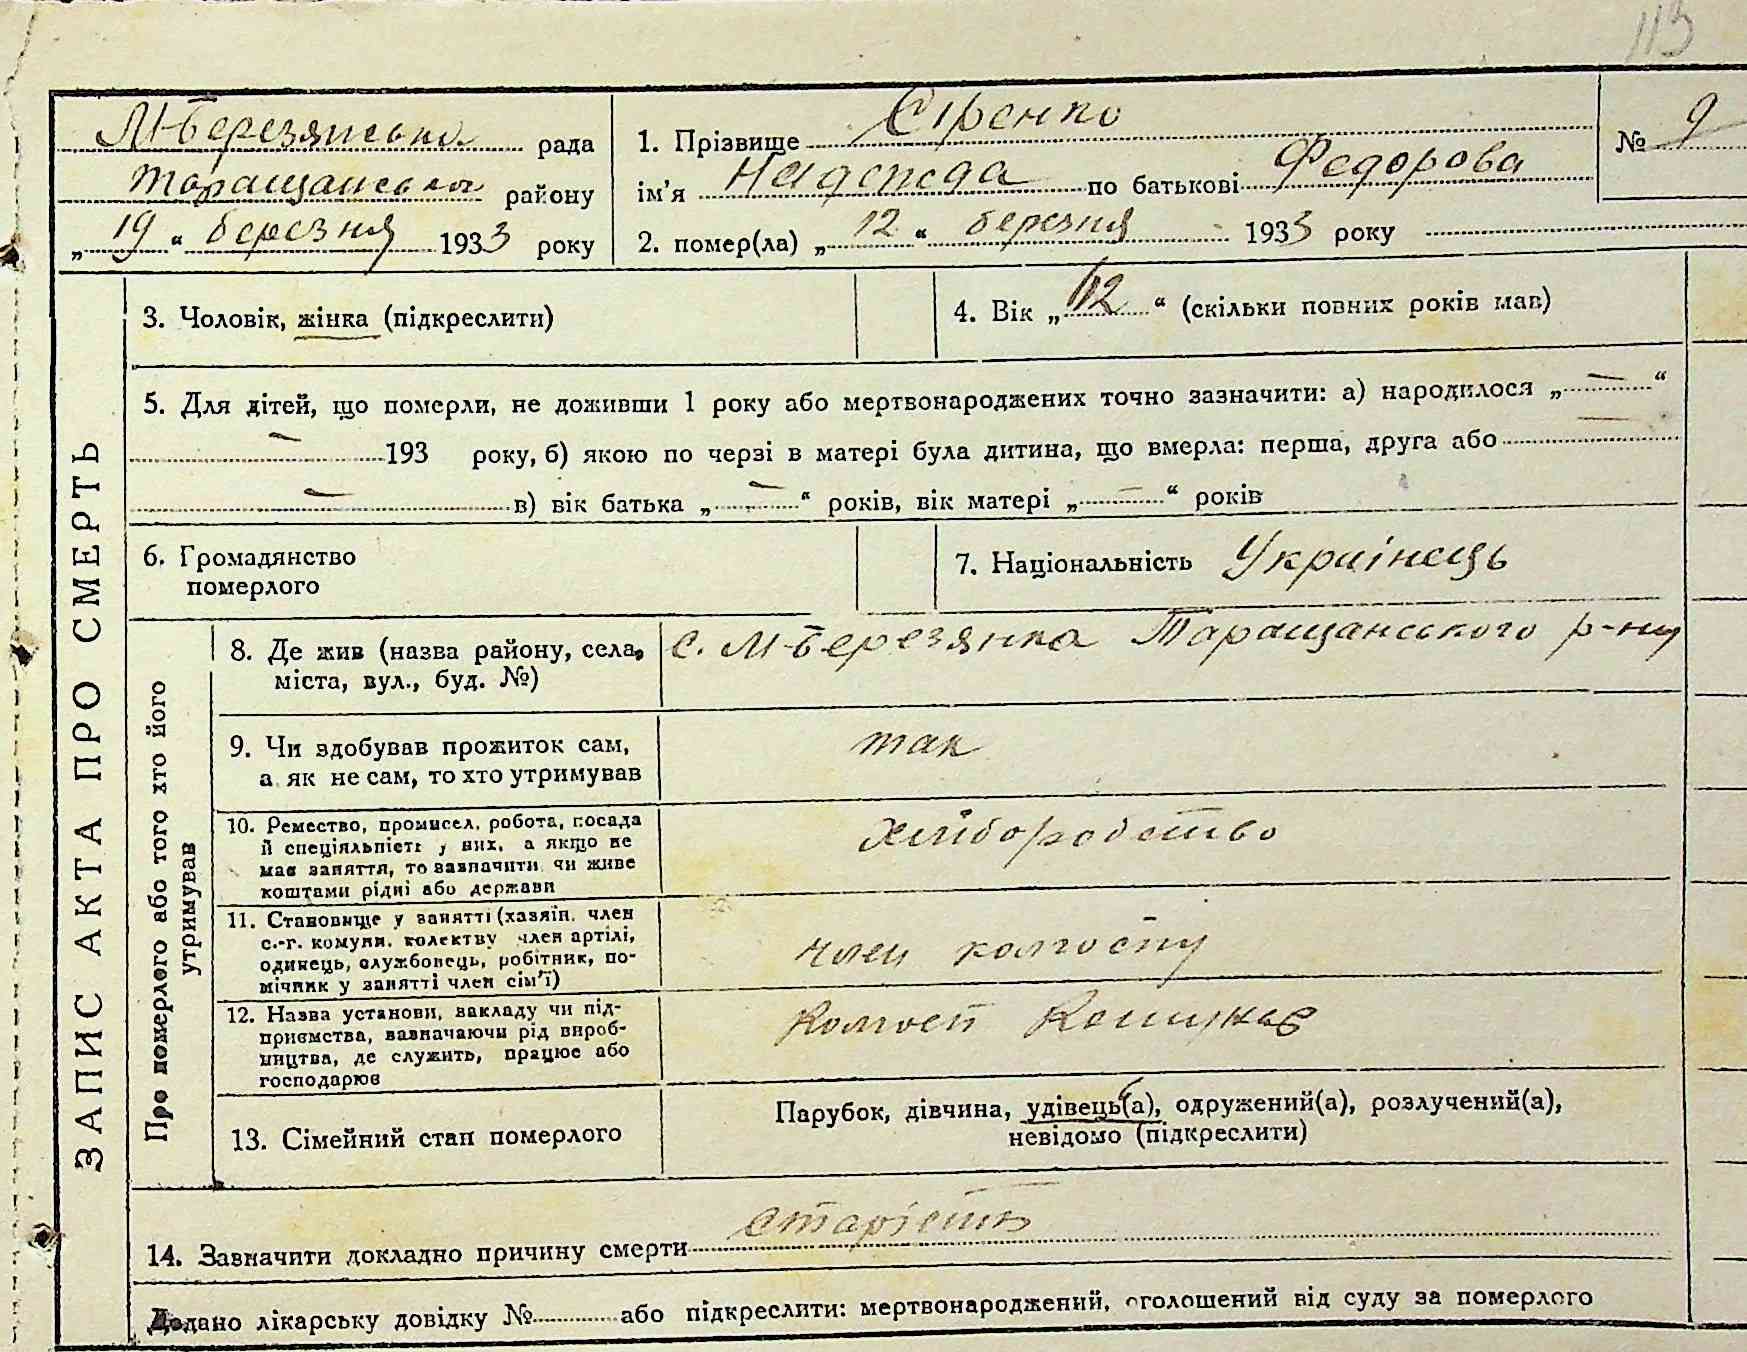 113
М-Березянська рада
Таращанська району
„ 19 “ березня 1933 року
1. Прізвище Сіренко
ім'я Надежда по батькові Федорова
2. помер(ла) „ 12 “ березня 1933 року
№ 9
ЗАПИС АКТА ПРО СМЕРТЬ
3. Чоловік, жінка (підкреслити)
4. Вік „ “ (скільки повних років мав)
5. Для дітей, що померли, не доживши 1 року або мертвонароджених точно зазначити: а) народилося „ — “
— 193 року, б) якою по черзі в матері була дитина, що вмерла: перша, друга або —
— в) вік батька „ — “ років, вік матері „ — “ років
6. Громадянство
померлого
7. Національність Українець
Про померлого або того хто його
утримував
8. Де жив (назва району, села,
міста, вул., буд. №)
с. М-Березянка Таращанського р-ну
9. Чи здобував прожиток сам,
а як не сам, то хто утримував
так
10. Ремество, промисел, робота, посада
й спеціяльність у них, а якщо не
має заняття, то зазначити чи живе
коштами рідні або держави
хліборобство
11. Становище у занятті (хазяїн, член
с.-г. комуни, колективу член артілі,
одинець, службовець, робітник, по-
мічник у занятті член сім'ї)
член колгоспу
12. Назва установи, закладу чи під-
приємства, зазначаючи рід вироб-
ництва, де служить, працює або
господарює
Колгосп
13. Сімейний стан померлого
Парубок, дівчина, удівець(а), одружений(а), розлучений(а),
невідомо (підкреслити)
14. Зазначити докладно причину смерти старість
Додано лікарську довідку № або підкреслити: мертвонароджений, оголошений від суду за померлого